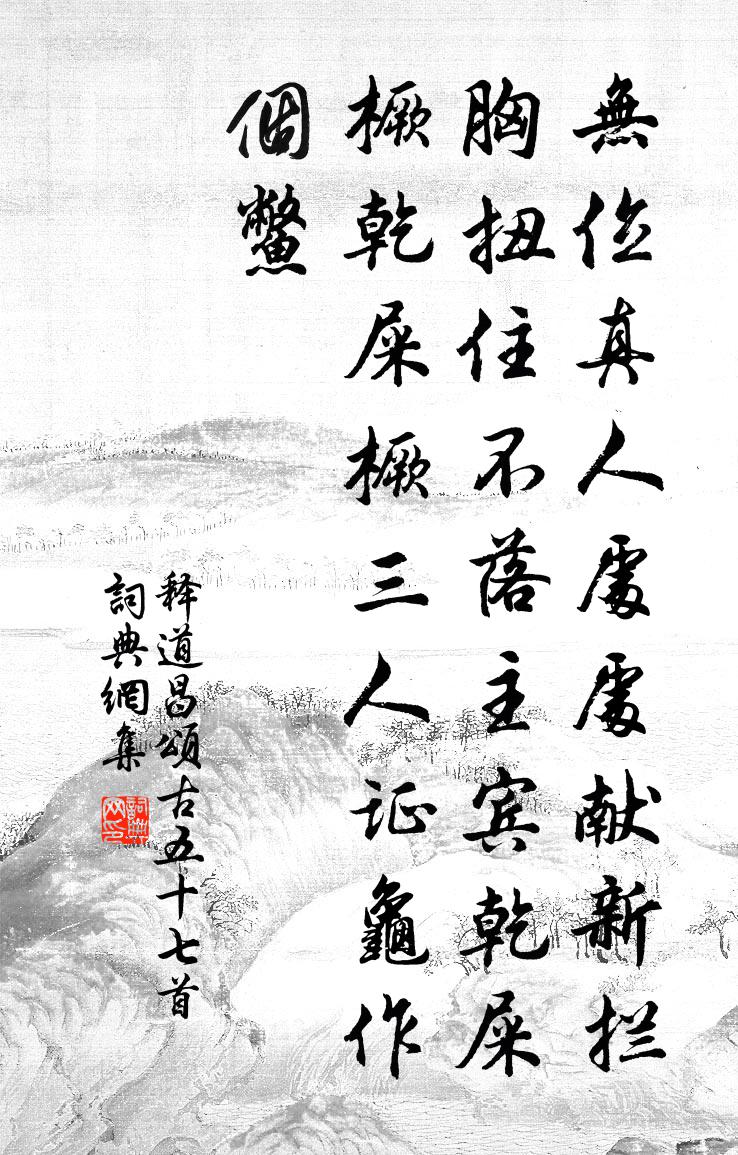 無位真人處處献新拦
胸扭住不落主宾乾屎
橛乾屎橛三人证龜作
個鱉
释道昌頌古五十七首
詞典網集
詞典網印